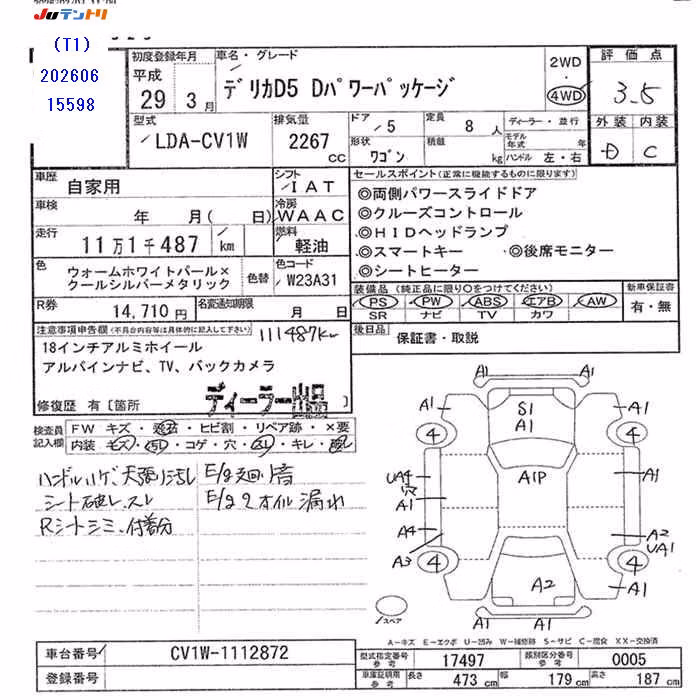 Juテントリ
(T1)
202606
15598
初度登録年月
平成
29 3月
車名・グレード
デリカD5 Dパワーパッケージ
2WD
・
4WD
評価点
3.5
外装 内装
D C
型式
LDA-CV1W
排気量
2267
cc
ドア
5
形状
ワゴン
定員
8 人
積載
kg
ディーラー・並行
モデル年式 年
ハンドル 左・右
車歴
自家用
シフト
IAT
車検
年 月( 日)
冷房
WAAC
走行
11万1千487 km
燃料
軽油
色
ウォームホワイトパール×
クールシルバーメタリック
色替
色コード
W23A31
R券
14,710円
名変通知期限
月 日
セールスポイント(正常に機能するものに限ります)
◎両側パワースライドドア
◎クルーズコントロール
◎HIDヘッドランプ
◎スマートキー ◎後席モニター
◎シートヒーター
装備品 (純正品に限り○をつけてください)
PS PW ABS エアB AW
SR ナビ TV カワ
新車保証書
有・無
後日品
保証書・取説
注意事項申告欄(不具合内容等は具体的に記入して下さい)
111487km
18インチアルミホイール
アルパインナビ、TV、バックカメラ
修復歴 有〔箇所 〕
ディーラー出品
検査員
記入欄
FW キズ・ ・ヒビ割・リペア跡・×要
内装 キズ・ ・コゲ・穴・スレ・キレ・
ハンドルハゲ、天張り汚れ
シート破レ、スレ
Rシートシミ、付着分
E/g廻り音
E/g2オイル漏れ
A1
A1 S1 A1
A1
4 4
UA4 A1P A1
穴
A1
A4 A2
A3 UA1
4 4
A2
A1
A1
スペア
A-キズ E-エクボ U-凹み W-補修跡 S-サビ C-腐食 XX-交換済
車台番号
CV1W-1112872
登録番号
型式指定番号
参考
17497
類別区分番号
参考
0005
車庫証明用
参考
長さ 473 cm 幅 179 cm 高さ 187 cm